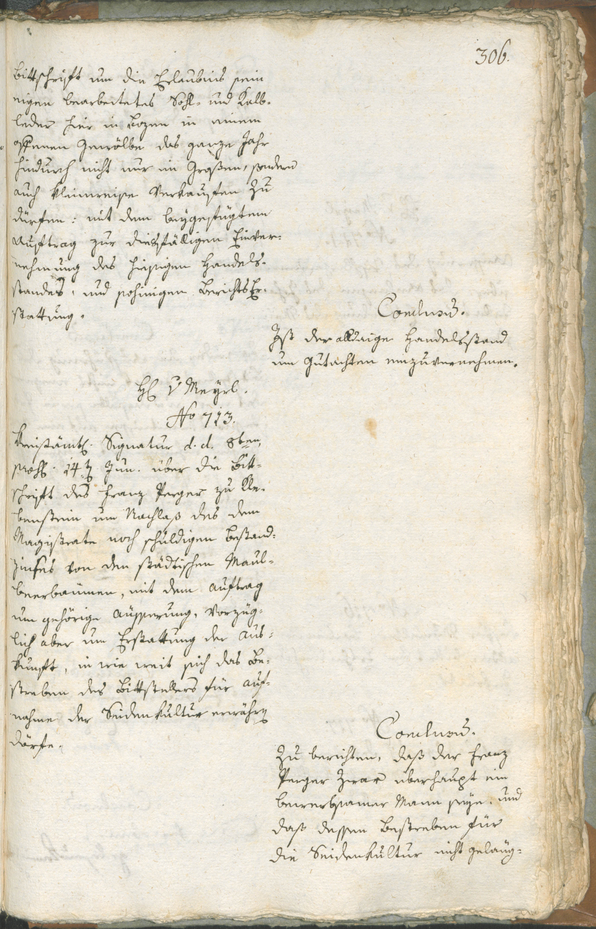 306.
Bittschrift um die Erlaubnis sein
eigen bearbeitetes Sohl- und Kalb-
leder hier in Bozen in einem
offenen Gewölbe das ganze Jahr
hindurch nicht nur im Großen, sondern
auch kleinweise verkaufen zu
dürfen: mit dem beygefügten
Auftrag zur diesfälligen Einver-
nehmung des hiesigen Handels-
standes, und sohinigen Berichts Er-
stattung.
Conclusum.
Ist der alldaige Handelsstand
um Gutachten einzuvernehmen.
H: v Meyrl.
No 713.
Kreisämtl. Signatur d. d. 8ten,
14 Jun. über die Bitt-
schrift des Franz Perger zu Kle-
benstein um Nachlaß des dem
Magistrate noch schuldigen Bestand-
zinses von den städtischen Maul-
beerbäumen, mit dem Auftrag
um gehörige Äusserung, vorzüg-
lich aber um Erstattung der Aus-
kunft, in wie weit sich das Be-
streben des Bittstellers für Auf-
nahme der Seidenkultur erwähren
dörfe.
Conclusum.
Zu berichten, daß der Franz
Perger zwar überhaupt ein
betriebsamer Mann seye, und
daß dessen Bestreben für
die Seidenkultur nicht geläug-